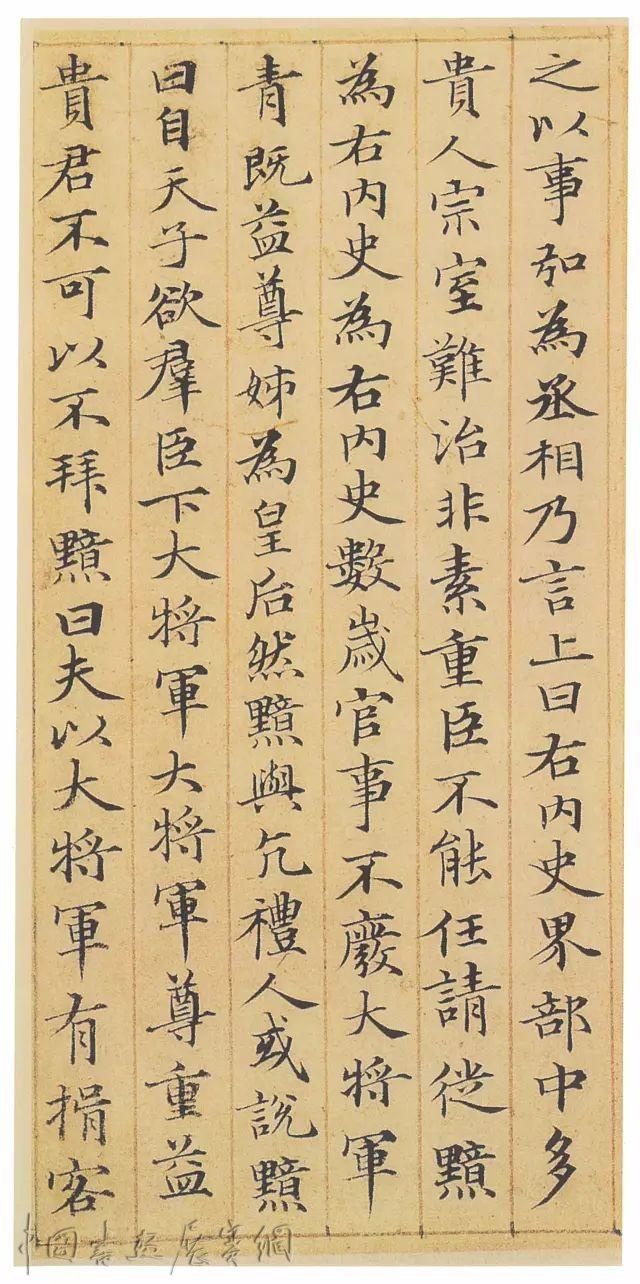 之以事弘為丞相乃言上曰右内史界部中多
貴人宗室難治非素重臣不能任請徙黯
為右内史為右内史數歲官事不廢大將軍
青既益尊姊為皇后然黯與亢禮人或說黯
曰自天子欲羣臣下大將軍大將軍尊重益
貴君不可以不拜黯曰夫以大將軍有揖客
中國書法展賽網